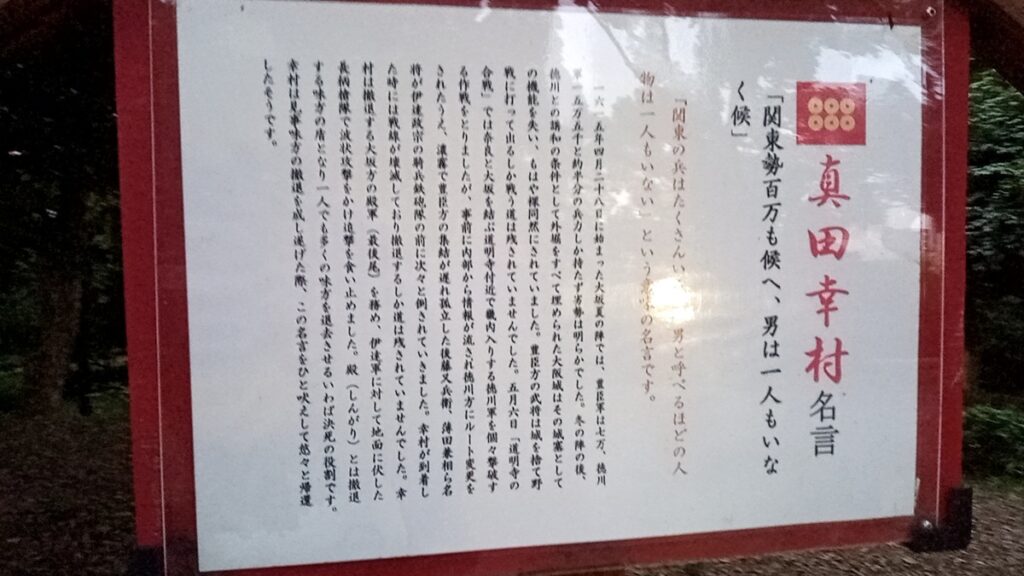 真田幸村名言
「関東勢百万も候へ、男は一人もいな
く候」
「関東の兵はたくさんい 男と呼べるほどの人
物は一人もいない」という の名言です。
一六一五年四月二十八日に始まった大坂夏の陣では、豊臣軍は七万、徳川
軍一五万五千と約半分の兵力しか持たず劣勢は明らかでした。冬の陣の後、
徳川との講和の条件として外堀をすべて埋められた大阪城はその城塞として
の機能を失い、もはや裸同然にされていました。豊臣方の武将は城を捨て野
戦に打って出るしか戦う道は残されていませんでした。五月六日「道明寺の
合戦」では奈良と大坂を結ぶ道明寺付近で畿内入りする徳川軍を個々撃破す
る作戦をとりましたが、事前に内部から情報が流され徳川方にルート変更を
されたうえ、濃霧で豊臣方の集結が遅れ孤立した後藤又兵衛、薄田兼相ら名
将が伊達政宗の騎兵鉄砲隊の前に次々と倒されていきました。幸村が到着し
た時には戦線が壊滅しており撤退するしか道は残されていませんでした。幸
村は撤退する大坂方の殿軍（最後尾）を務め、伊達軍に対して地面に伏した
長柄槍隊で波状攻撃をかけ追撃を食い止めました。殿（しんがり）とは撤退
する味方の盾となり一人でも多くの味方を退去させるいわば決死の役割です。
幸村は見事味方の撤退を成し遂げた際、この名言をひと吠えして悠々と帰還
したそうです。